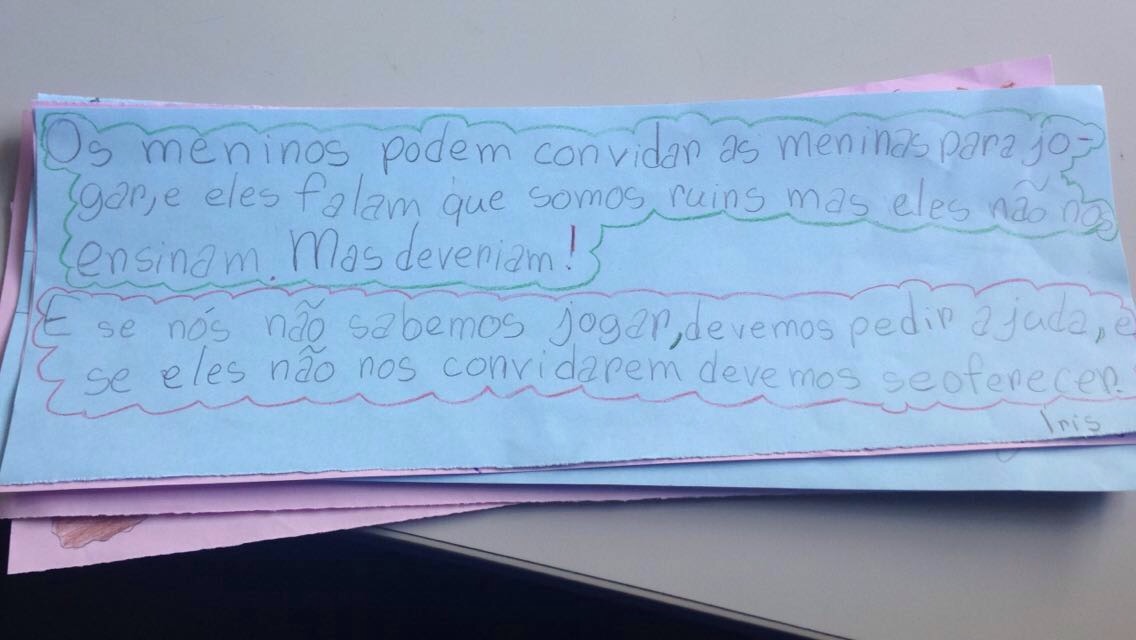 Os meninos podem convidar as meninas para jo-
gar, e eles falam que somos ruins mas eles não nos
ensinam. Mas deveriam!
E se nós não sabemos jogar, devemos pedir ajuda, e
se eles não nos convidarem devemos se oferecer.
Iris